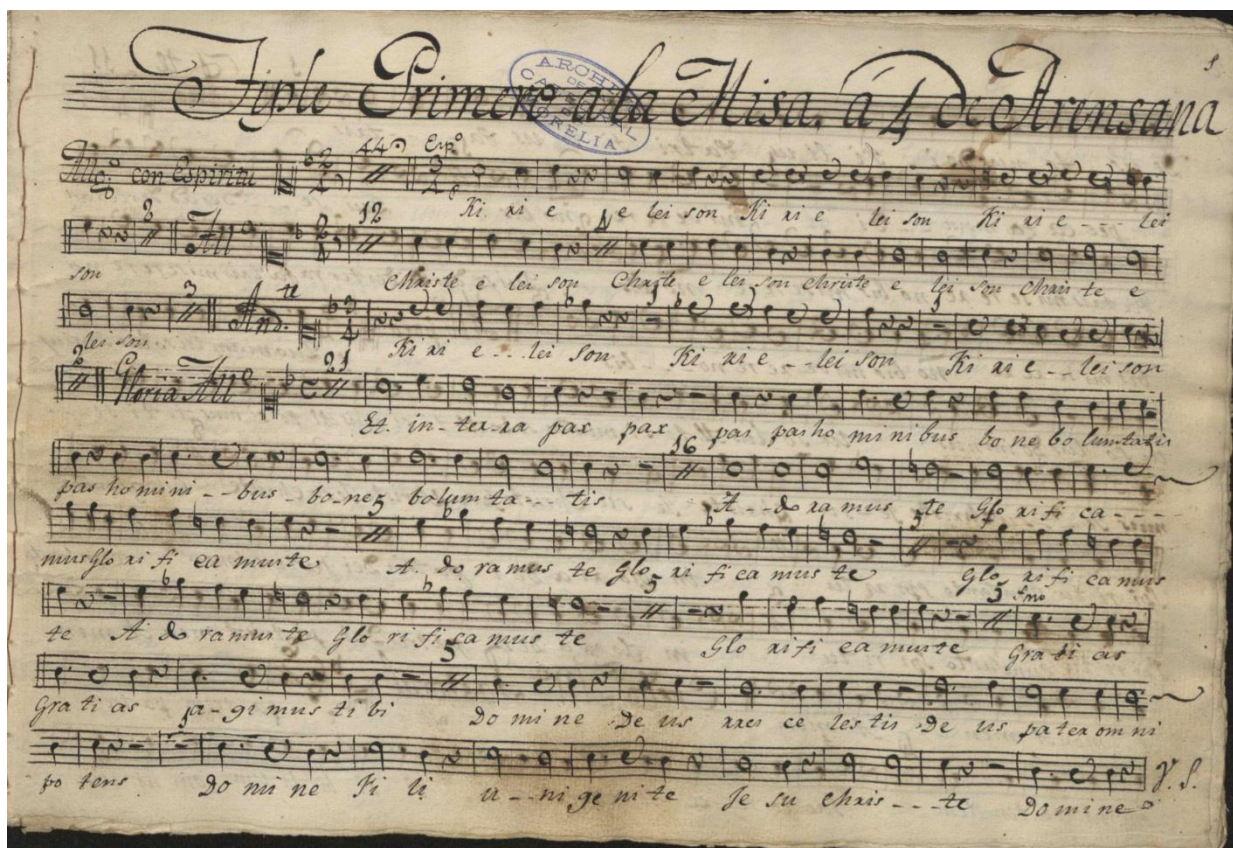 Tiple Primero a la Misa, á 4 de Arensana
ARCHIVO DE LA CATEDRAL MORELIA
Allg.o con Espiritu 2 4 44 Esp.o 3 4
Ki xi e e lei son Ki xi e lei son Ki xi e - - lei
2 All 2 4 12 4
son Christe e lei son Christe e lei son christe e lei son chris te e
3 And.te 3 4 3
lei son Ki xi e - - lei son Ki xi e - - lei son Ki xi e - - lei son
2 Gloria All.o 21
Et. in - ter - ra pax pax pax pas ho mi ni bus bo ne bo lun tatis
16
pas ho mi ni - - bus - bo - nez bolum ta - - - tis A - - do ra mus te Glo xi fi ca - - - -
5 5
mus Glo xi fi ca muste A. do ramus te Glo xi fi ca mus te Glo xi fi ca mus
5 5
te A do ramus te Glo ri fi ca mus te Glo xi fi ca muste Grati as
5
Gra ti as a - gi mus ti bi Do mi ne De us xxei ce les tis De us pa tex om ni
po tens Do mi ne Fi li u - - ni ge ni te Je su chxis - - - te Do mi ne
V. S.